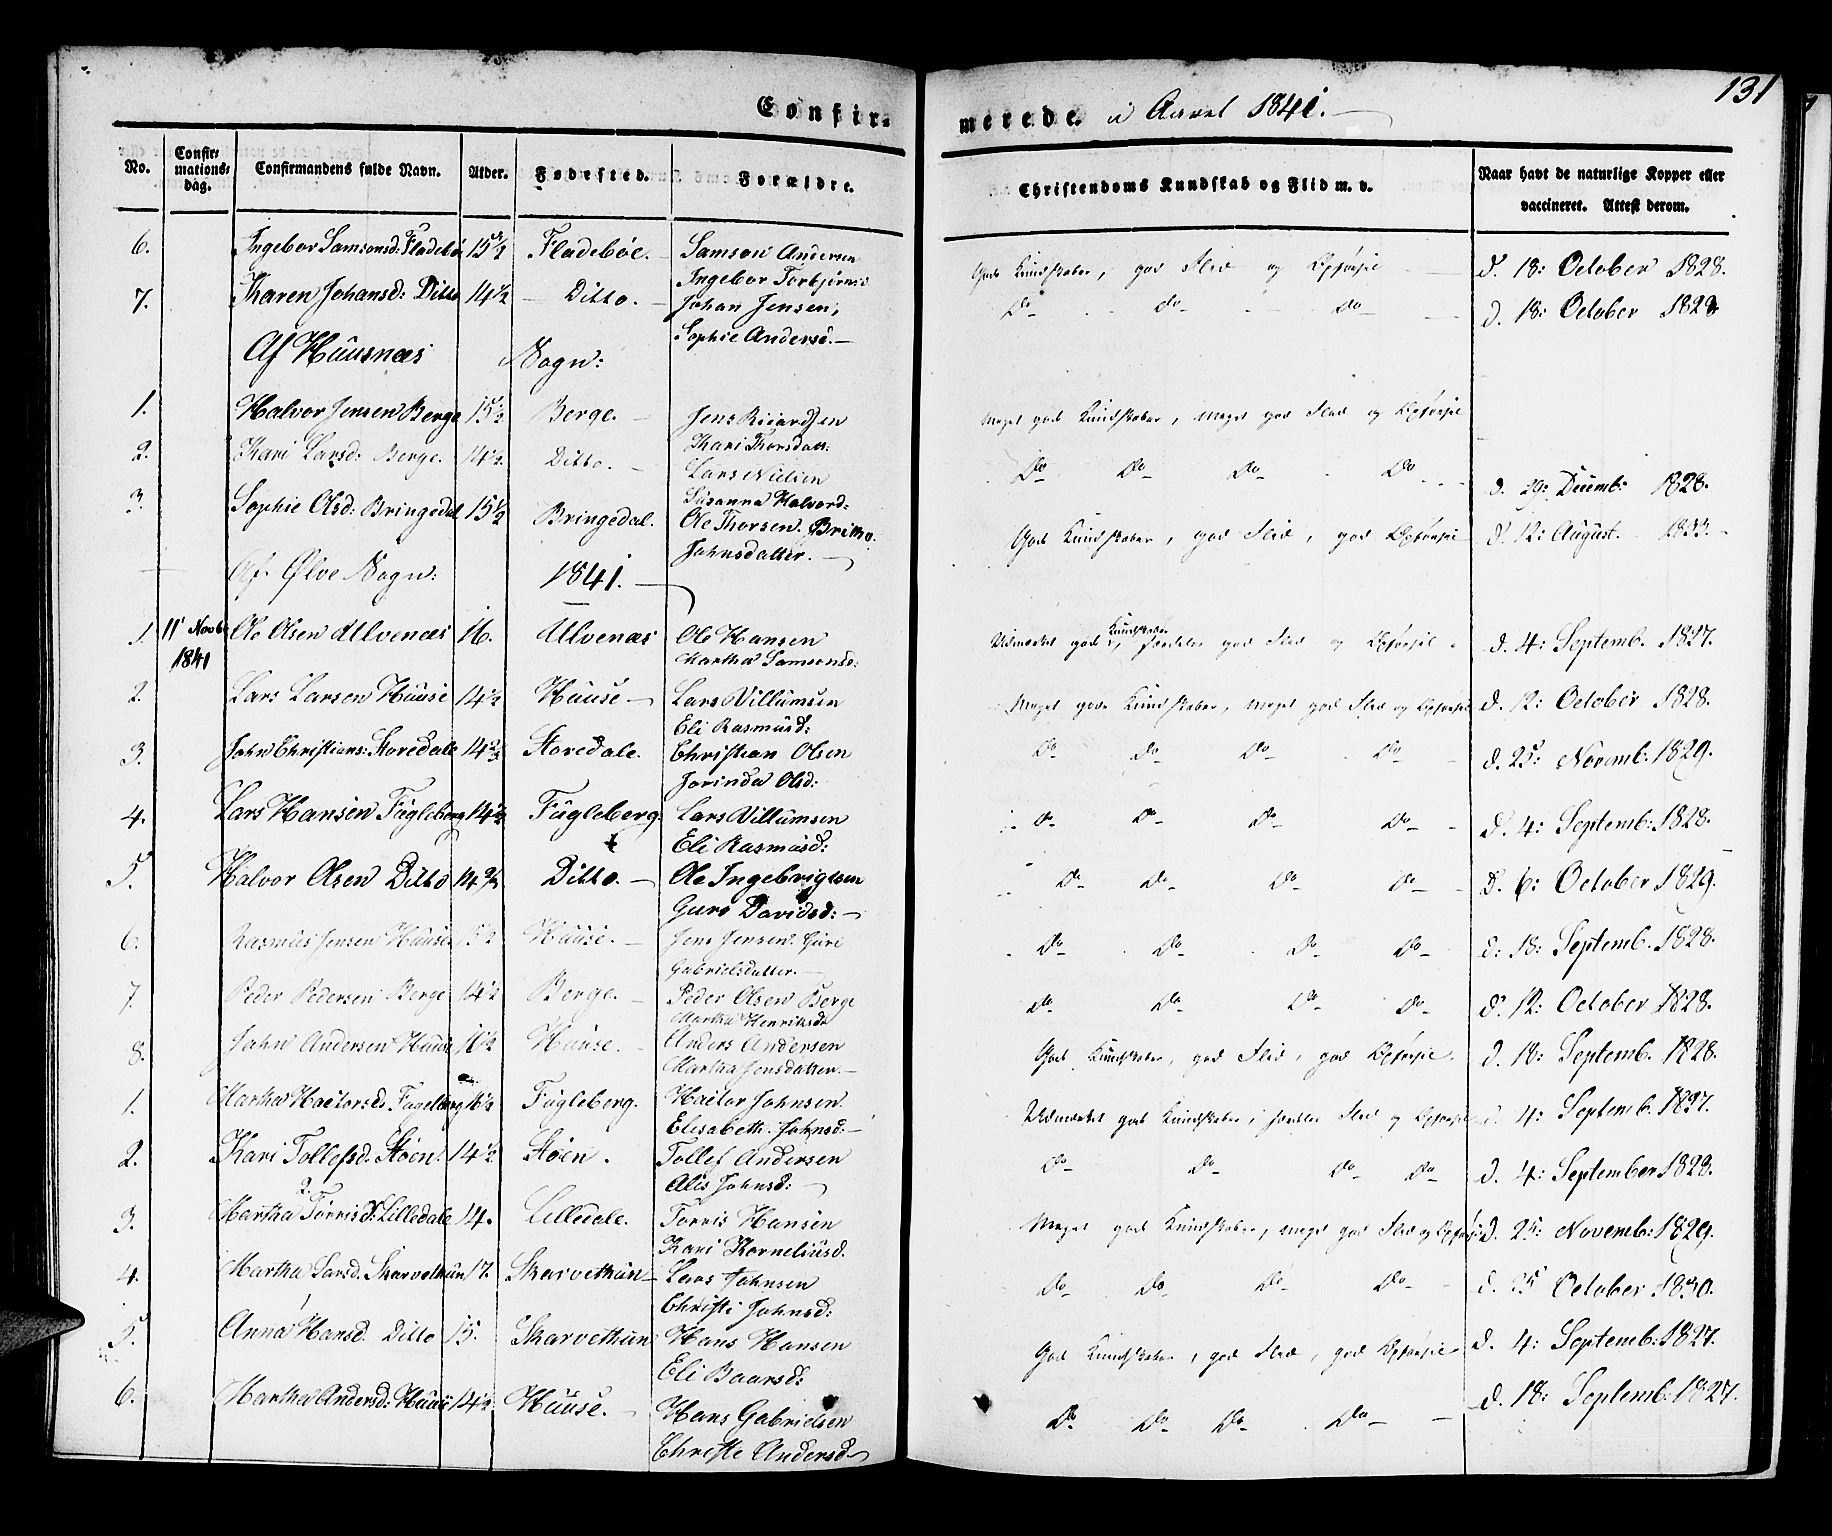 131
Confirmerede i Aaret 1841.
No. Confirmationsdag. Confirmandens fulde Navn. Alder. Fødested. Forældre. Christendoms Kundskab og Flid m. v. Naar havt de naturlige Kopper eller vaccineret. Attest derom.
6. Ingebor Samsonsd: Fladebø 15 1/2 Fladebøe. Samson Andersen
Ingebor Torbjørns God Kundskaber, god Flid og Opførsel d. 18: October 1828.
7. Karen Johansd: Ditto 14 1/2 Ditto. Johan Jensen, Do Do Do d. 18: October
Sophie Andersd.
Af Huusnæs Sogn:
1. Halvor Jensen Berge 15 1/2 Berge. Jens Meget god Kundskaber, meget god Flid og Opførsel
Kari Thorsdatt:
2. Kari Larsd: Berge. 14 1/2 Ditto. Lars Nielsen Do Do Do Do d. 29: Decemb: 1828.
Susanna Halvord:
3. Sophie Olsd: Bringedal 15 1/2 Bringedal. Ole Thorsen. Britha God Kundskaber, god Flid, god Opførsel d. 12: August. 1833.
Johnsdatter.
Af Ølve Sogn: 1841.
1. 11 Novb: 1841 Ole Olsen Ulvenæs 16. Ulvenæs Ole Hansen Udmærket god Kundskaber, god Flid og Opførsel d. 4: Septemb. 1827.
Martha Samsonsd:
2. Lars Larsen Huuse 14 1/2 Huuse Lars Villumsen Meget gode Kundskaber, meget god Flid og Opførsel d. 12: October 1828.
Eli Rasmusd:
3. John Christians: Storedale 14 2/3 Storedale. Christian Olsen Do Do Do Do d. 25: Novemb: 1829.
Jorinda Olsd:
4. Lars Hansen Fugleberg 14 1/2 Fugleberg. Lars Villumsen Do Do Do Do d. 4: Septemb: 1828.
Eli Rasmusd:
5. Halvor Olsen Ditto 14 Ditto. Ole Ingebrigtsen Do Do Do Do d. 6: October 1829.
Guro Davidsd:
6. Rasmus Jensen Huuse 15 1/2 Huuse. Jens Jensen. Guri Do Do Do Do d: 18: Septemb. 1828.
Gabrielsdatter.
7. Peder Pedersen Berge 14 1/2 Berge. Peder Olsen Berge Do Do Do Do d. 12: October 1828.
Martha Henriksd:
8. John Andersen Huuse 16 1/2 Huuse. Anders Andersen God Kundskaber, god Flid, god Opførsel. d. 18: Septemb. 1828.
Martha Jensdatter.
1. Martha Hactorsd: Fugelberg 16 1/2 Fugleberg. Hactor Johnsen. Udmærket god Kundskaber, Flid og Opførsel d. 4: Septemb. 1827.
Elisabeth. Johnsd:
2. Kari Tollefsd: Støen. 14 1/2 Støen. Tollef Andersen Do Do Do Do d. 4: September 1828.
Alis Johnsd:
3. Martha Torrisd: Lilledale 14. Lilledale. Torris Hansen Meget god Kundskaber, meget god Flid og Opførsel d. 25: Novemb: 1829.
Kari Korneliusd.
4. Martha Larsd. Skarvethun 17. Skarvethun Lars Johnsen Do Do Do Do d. 25 October 1830.
Christi Johnsd:
5. Anna Hansd. Ditto 15. Skarvethun Hans Hansen God Kundskaber, god Flid, god Opførsel d. 4: Septemb: 1827.
Eli Baarsd:
6. Martha Andersd: Huuse 14 1/2 Huuse. Hans Gabrielsen Do Do Do Do d. 18: Septemb: 1827.
Christe Andersd